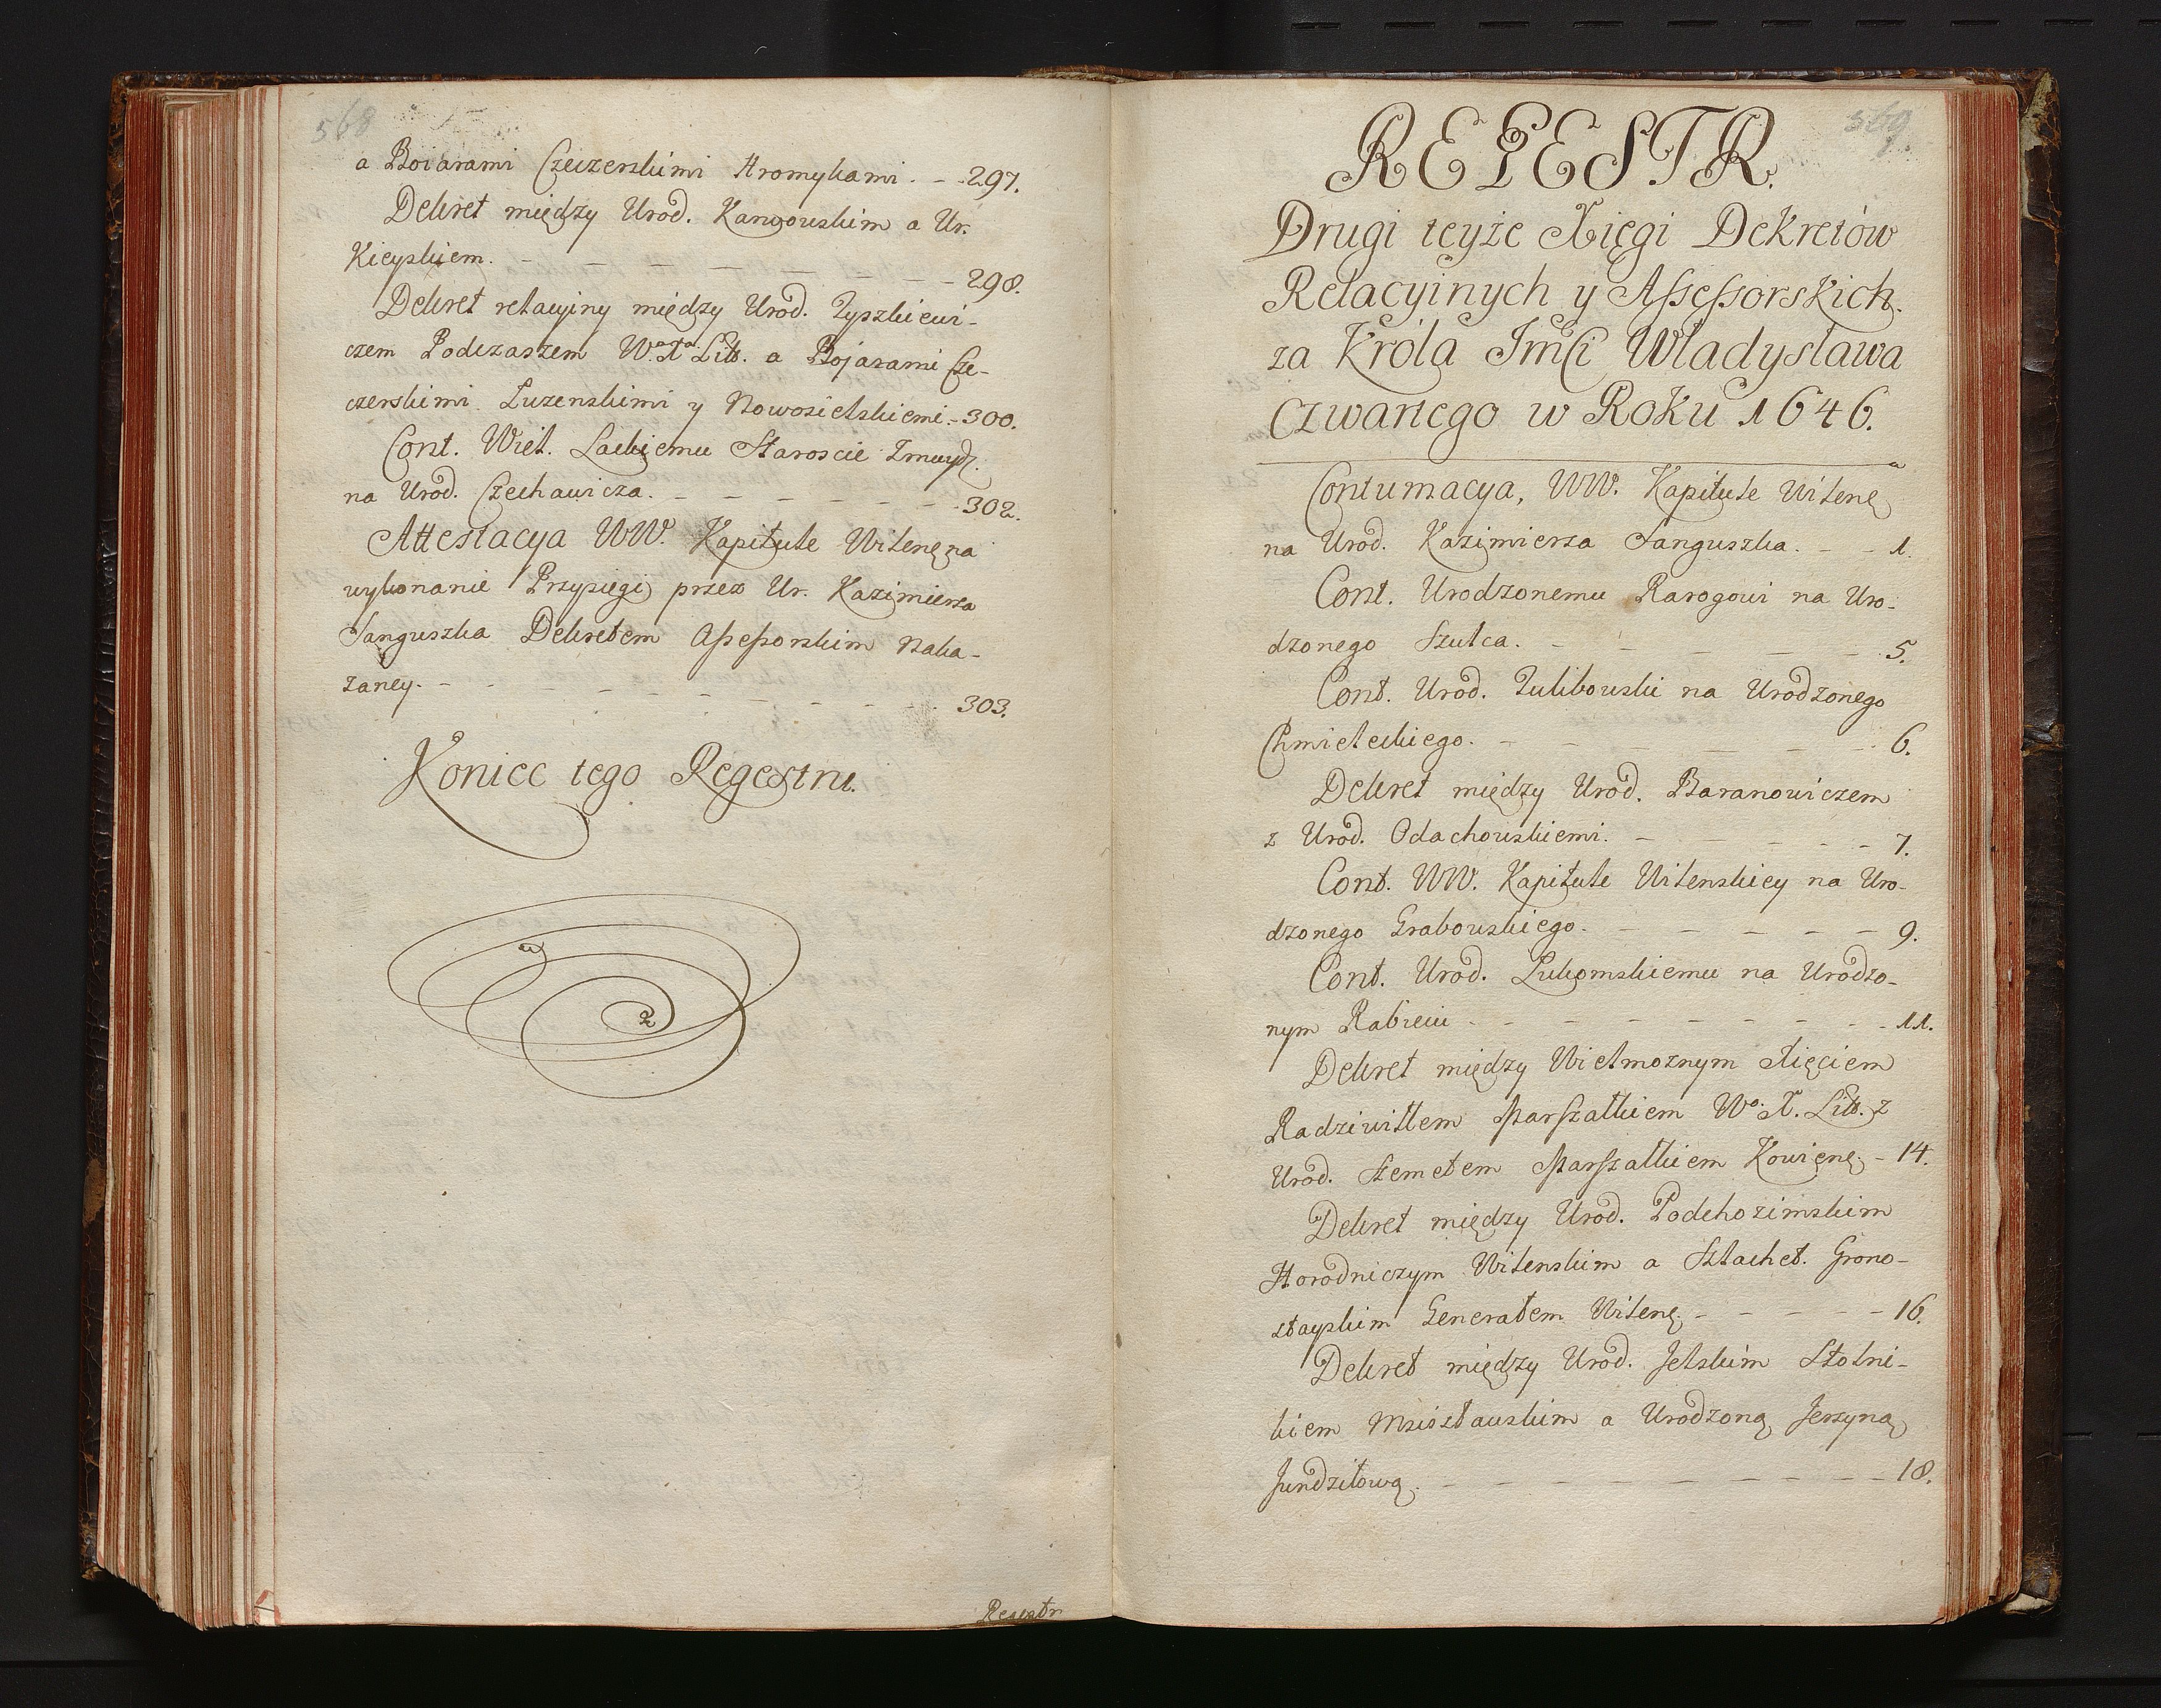 568
a Boiarami Czeczerskimi Hromykami. - - 297.
Dekret między Urod. Kanwowskim a Ur.
Kieyskiem. - - - - - - - - 298.
Dekret relacyiny między Urod. Tyszkiewi-
czem Podczaszem W. X. Litt. a Bojarami Cze-
czerskimi Luzenskimi y Nowosielskiemi. - 300.
Cont. Wiel. Lackiemu Staroscie Zmuydz.
na Urod. Czechawicza. - - - - - - 302.
Attestacya WW. Kapitule Wileńs. na
wykonanie Przysięgi przez Ur. Kazimierza
Sanguszka Dekretem Assessorskim Naka-
zaney. - - - - - - - - - - 303.
Koniec tego Regestru.
Regestr
569
REGESTR.
Drugi teyże Xięgi Dekretów
Relacyinych y Assessorskich.
za Króla Jmści Władysława
Czwartego w Roku 1646.
Contumacya, WW. Kapitule Wileńs.
na Urod. Kazimierza Sanguszka. - - 1.
Cont. Urodzonemu Rarogowi na Uro-
dzonego Szulca. - - - - - - 5.
Cont. Urod. Zulibowski na Urodzonego
Chmieleckiego. - - - - - - 6.
Dekret między Urod. Baranowiczem
z Urod. Odachowskiemi. - - - - - 7.
Cont. WW. Kapitule Wilenskiey na Uro-
dzonego Grabowskiego. - - - - - - 9.
Cont. Urod. Lukomskiemu na Urodzo-
nym Rabieiu - - - - - - - - 11.
Dekret między Wielmoznym Xięciem
Radziwiłłem Marszałkiem Wo. X. Litt. z
Urod. Szemetem Marszałkiem Kowieńs. - 14.
Dekret między Urod. Podchozimskim
Horodniczym Wilenskim a Szlachet. Grono-
stayskim Generałem Wileńs. - - - - - 16.
Dekret między Urod. Jelskim Stolni-
kiem Mscisławskim a Urodzoną Jerzyną
Jundziłową. - - - - - - - - - 18.